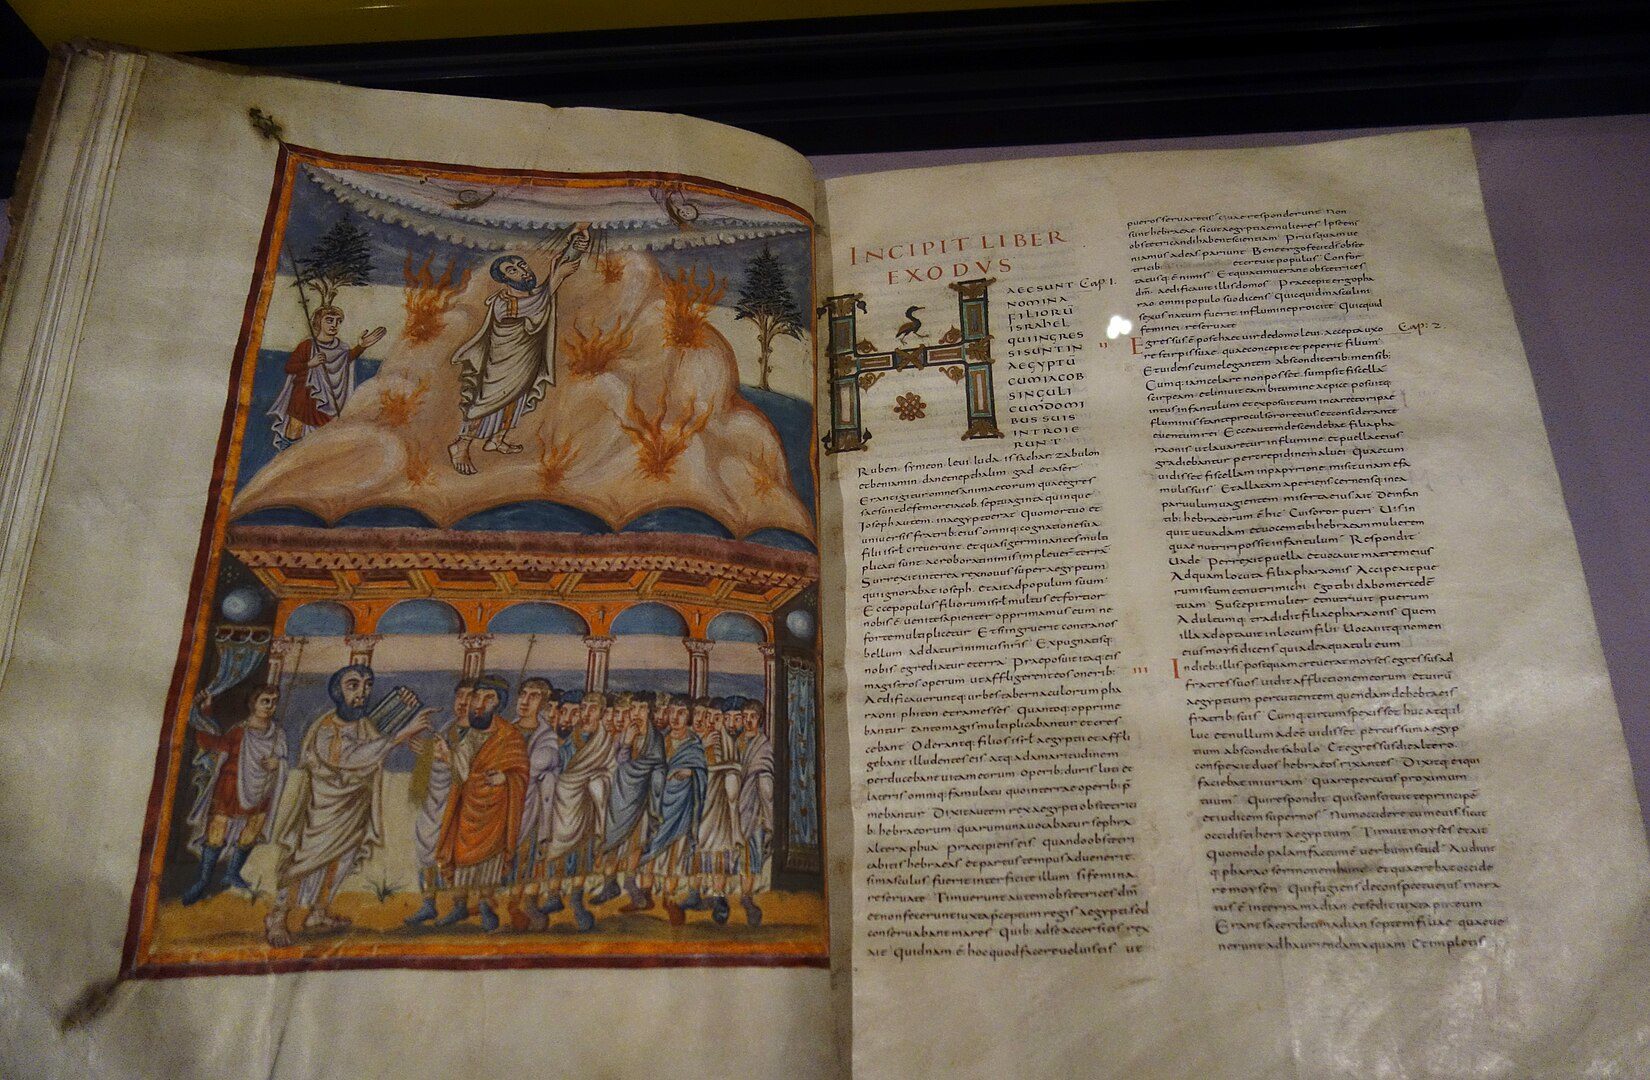 INCIPIT LIBER
EXODVS
HAEC SUNT Cap 1.
NOMINA
FILIORŪ
ISRAHEL
QUI INGRES
SI SUNT IN
AEGYPTŪ
CUM IACOB
SINGULI
CUM DOMI
BUS SUIS
INTROIE
RUNT
Ruben. simeon. levi. iuda. issachar. zabulon
et beniamin. dan et nepthalim. gad. et aser
Erant igitur omnes animae eorum quae egres
sae sunt de femore iacob. septuaginta quinque
Ioseph autem. in aegypto erat Quo mortuo et
universis fratrib; eius omniq; cognatione sua
filii isrl creverunt. et quasi germinantes multi
plicati sunt. ac roborati nimis impleverͭ terrā
Surrexit interea rex novus super aegyptum
qui ignorabat ioseph. et ait ad populum suum
Ecce populus filiorum isrl multus et fortior
nobis ē venite sapienter opprimamus eum ne
forte multiplicetur Et si ingruerit contra nos
bellum addatur inimicis nr̄is Expugnatisq;
nobis egrediatur e terra Praeposuit itaq; eis
magistros operum ut affligerent eos onerib;
Aedificaveruntq; urbes tabernaculorum pha
raoni phiton et ramesses Quantoq; opprime
bantur tanto magis multiplicabantur et cres
cebant Oderantq; filios isrl aegyptii et affli
gebant illudentes eis atq; ad amaritudinem
perducebant vitam eorum operib; duris luti et
lateris omniq; famulatu quo in terrae operib; p
mebantur Dixit autem rex aegypti obstetrici
b; hebraeorum quarum una vocabatur sephra
altera phua Praecipiens eis quando obsteri
cabitis hebraeas et partus tempus advenerit
si masculus fuerit interficite illum si femina
reservate Timuerunt autem obstetrices dm̄
et non fecerunt iuxta pceptum regis aegypti sed
conservabant mares Quib; ad se accersitis rex
ait Quidnam ē hoc quod facere voluistis ut
pueros servaretis Quae responderunt Non
sunt hebraeae sicut aegyptiae mulieres Ipse eni
obstetricandi habent scientiam Priusquam ve
niamus ad eas pariunt Bene ergo fecit ds obste
tricib; et crevit populus Confor
tatusq; ē nimis Et quia timuerant obstetrices
dm̄ aedificavit illis domos Praecepit ergo pha
rao omni populo suo dicens Quicquid masculini
sexus natum fuerit in flumine proicite Quicquid
feminei reservate
II Egressus ē post haec vir de domo levi accepta uxo Cap: 2.
re stirpis suae quae concepit et peperit filium
Et videns eum elegantem abscondit trib; mensib;
Cumq; iam celare non posset sumpsit fiscellā
scirpeam et linivit eam bitumine ac pice posuitq;
intus infantulum et exposuit eum in carecto ripae
fluminis stante procul sorore eius et considerante
eventum rei Ecce autem descendebat filia pha
raonis ut lavaretur in flumine et puellae eius
gradiebantur per crepidinem alvei Quae cum
vidisset fiscellam in papyrione misit unam e fa
mulis suis Et allatam aperiens cernensq; in ea
parvulum vagientem miserta eius ait De infan
tib; hebraeorum ē hic Cui soror pueri Vis in
quit ut vadam et vocem tibi hebraeam mulierem
quae nutrire possit infantulum Respondit
Vade Perrexit puella et vocavit matrem eius
Ad quam locuta filia pharaonis Accipe ait pue
rum istum et nutri michi Ego tibi dabo mercedē
tuam Suscepit mulier et nutrivit puerum
Adultumq; tradidit filiae pharaonis Quem
illa adoptavit in locum filii Vocavitq; nomen
eius moysi dicens quia de aqua tuli eum
III In dieb; illis postquam creverat moyses egressus ad
fratres suos vidit afflictionem eorum et virū
aegyptium percutientem quendam de hebraeis
fratrib; suis Cumq; circumspexisset huc atq; il
luc et nullum adee vidisset percussum aegyp
tium abscondit sabulo Et egressus die altero
conspexit duos hebraeos rixantes Dixitq; ei qui
faciebat iniuriam Quare percutis proximum
tuum Qui respondit Quis constituit te principē
et iudicem super nos Num occidere tu me vis sicut
occidisti heri aegyptium Timuit moyses et ait
Quomodo palam factum ē verbum istud Audivit
q; pharao sermonem hunc et quaerebat occide
re moysen Qui fugiens de conspectu eius mora
tus ē in terra madian et sedit iuxta puteum
Erant sacerdoti madian septem filiae quae ve
nerunt ad hauriendam aquam Et impletis